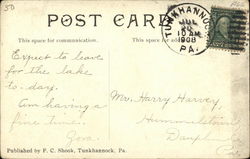 50
POST CARD
This space for communication.
This space for add
TUNKHANNOCK
JUL
10 AM
1908
PA.
Expect to leave
for the lake
to-day.
Am having a
fine time.
Mr. Harry Harvey,
Hummelstown
Published by F. C. Shook, Tunkhannock, Pa.